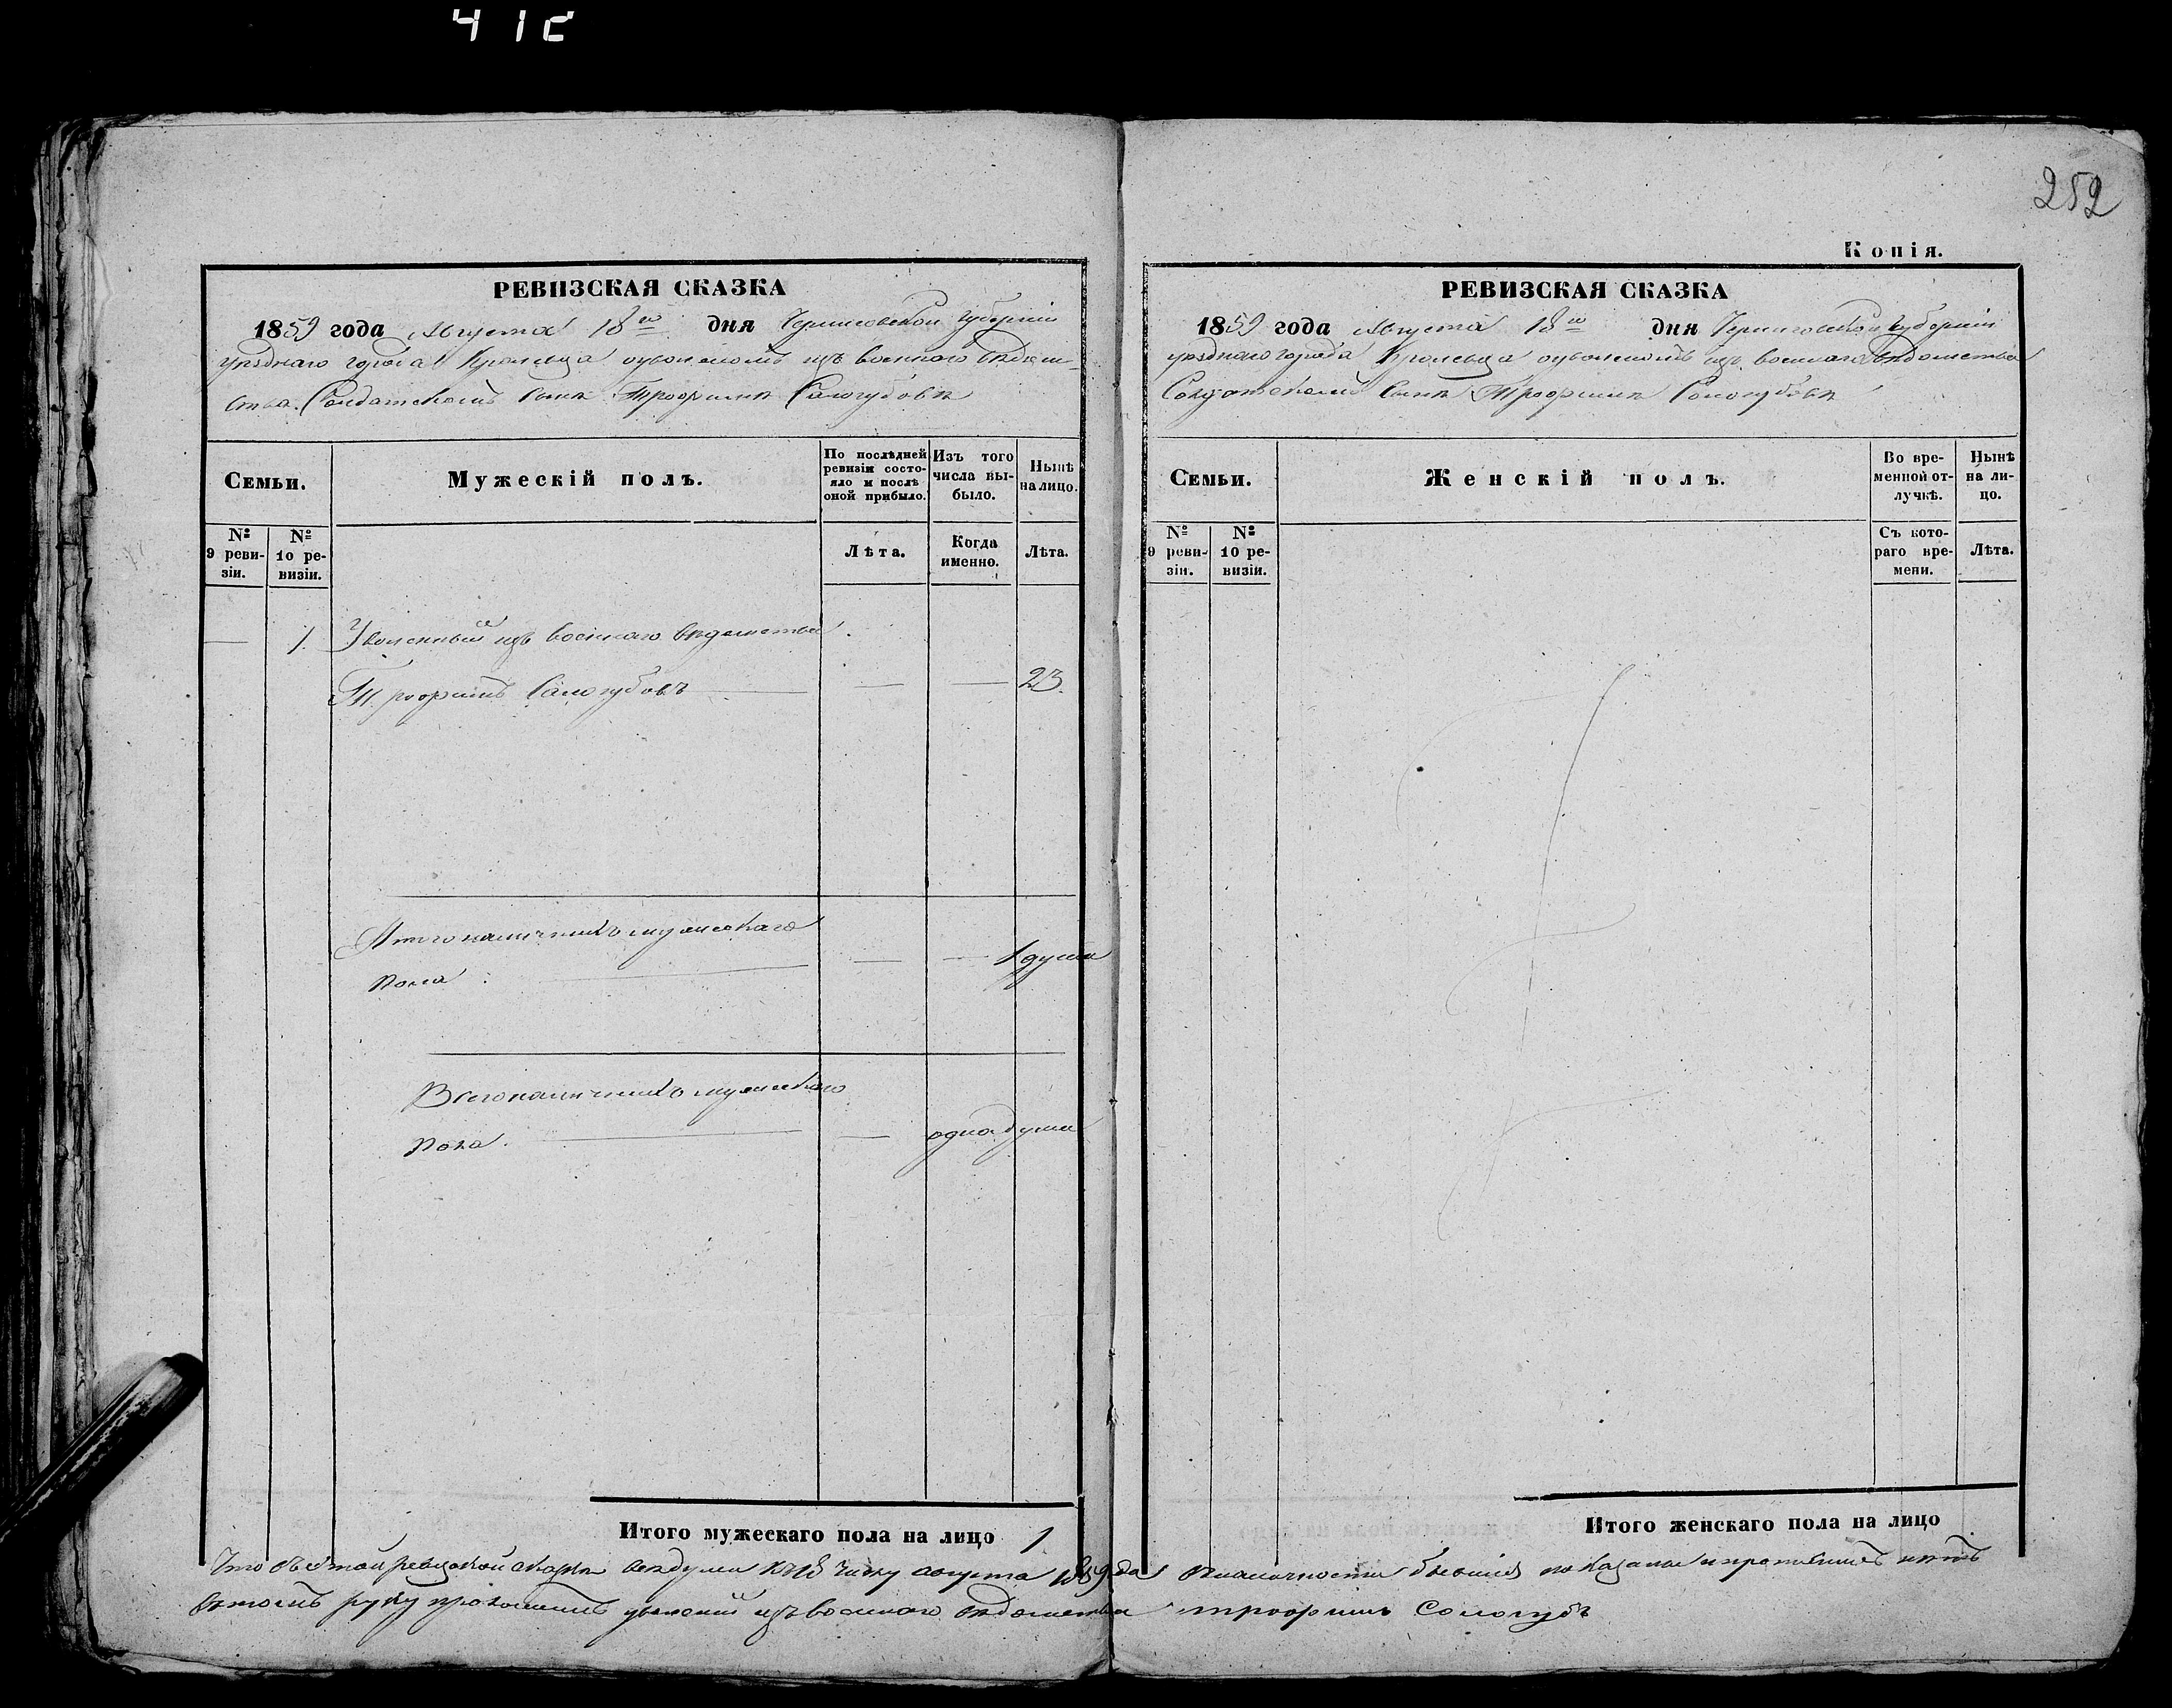 412
252
Копія.
РЕВИЗСКАЯ СКАЗКА
1859 года Августа 18го дня Черниговской Губерніи
уѣзднаго города Кролевца о уволеномъ изъ военнаго вѣдом-
ства Солдатскомъ сынѣ Трофимѣ Сологубовѣ
Семьи.
Мужескій полъ.
По послѣдней ревизіи состояло и послѣ оной прибыло.
Изъ того числа выбыло.
Нынѣ на лицо.
№ 9 ревизіи.
№ 10 ревизіи.
Лѣта.
Когда именно.
Лѣта.
— 1. Уволенный изъ военнаго вѣдомства
Трофимъ Сологубовъ — — — 23.
Итого наличныхъ мужескаго
пола — — — 1 душа
Всего наличныхъ мужескаго
пола — — одна душа
Итого мужескаго пола на лицо 1
РЕВИЗСКАЯ СКАЗКА
1859 года Августа 18го дня Черниговской Губерніи
уѣзднаго города Кролевца о уволеномъ изъ военнаго вѣдомства
Солдатскомъ сынѣ Трофимѣ Сологубовѣ
Семьи.
Женскій полъ.
Во временной отлучкѣ.
Нынѣ на лицо.
№ 9 ревизіи.
№ 10 ревизіи.
Съ котораго времени.
Лѣта.
Итого женскаго пола на лицо
Что въ этой ревизской сказки всѣ души къ 18 числу августа 1859 года в наличности бывшія показаны и прописныхъ нѣтъ
в томъ руку приложилъ уволеный изъ военнаго вѣдомства трофимъ Сологубъ